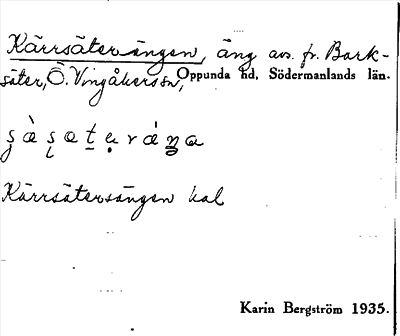 Kärrsäterängen, äng avs. fr. Bark-
säter, Ö. Vingåkers sn, Oppunda hd, Södermanlands län.
Kärrsätersängen kal
Karin Bergström 1935.